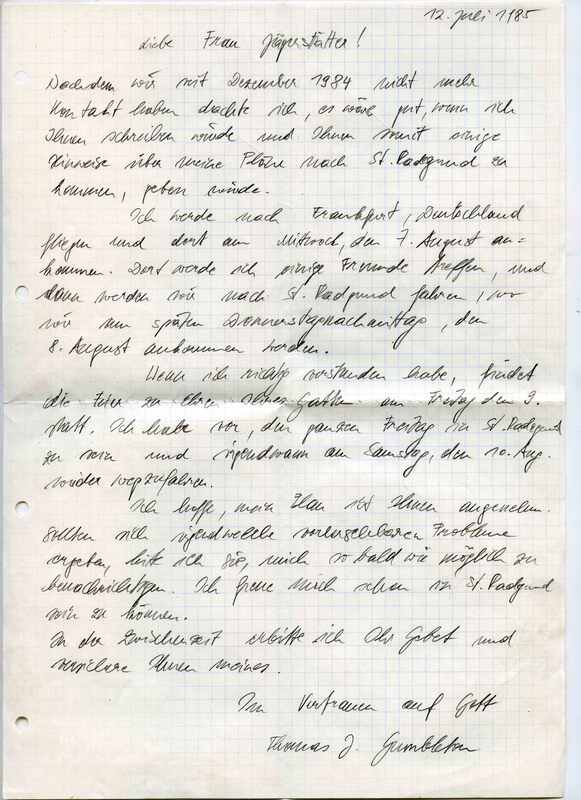 12. Juli 1985
Liebe Frau Jägerstätter!
Nachdem wir seit Dezember 1984 nicht mehr
Kontakt haben dachte ich, es wäre gut, wenn ich
Ihnen schreiben würde und Ihnen somit einige
Hinweise über meine Pläne nach St. Radgund zu
kommen, geben würde.
Ich werde nach Frankfurt, Deutschland
fliegen und dort am Mittwoch, den 7. August an=
kommen. Dort werde ich einige Freunde treffen, und
dann werden wir nach St. Radgund fahren, wo
wir am späten Donnerstagnachmittag, den
8. August ankommen werden.
Wenn ich richtig verstanden habe, findet
die Feier zu Ehren Ihres Gatten am Freitag den 9.
statt. Ich habe vor, den ganzen Freitag in St. Radgund
zu sein und irgendwann am Samstag, den 10. Aug.
wieder wegzufahren.
Ich hoffe, mein Plan ist Ihnen angenehm.
Sollten sich irgendwelche Probleme
ergeben, bitte ich Sie, mich so bald wie möglich zu
benachrichtigen. Ich freue mich schon in St. Radgund
sein zu können.
In der Zwischenzeit erbitte ich Ihr Gebet und
versichere Ihnen meines.
Im Vertrauen auf Gott
Thomas J. Gumbleton